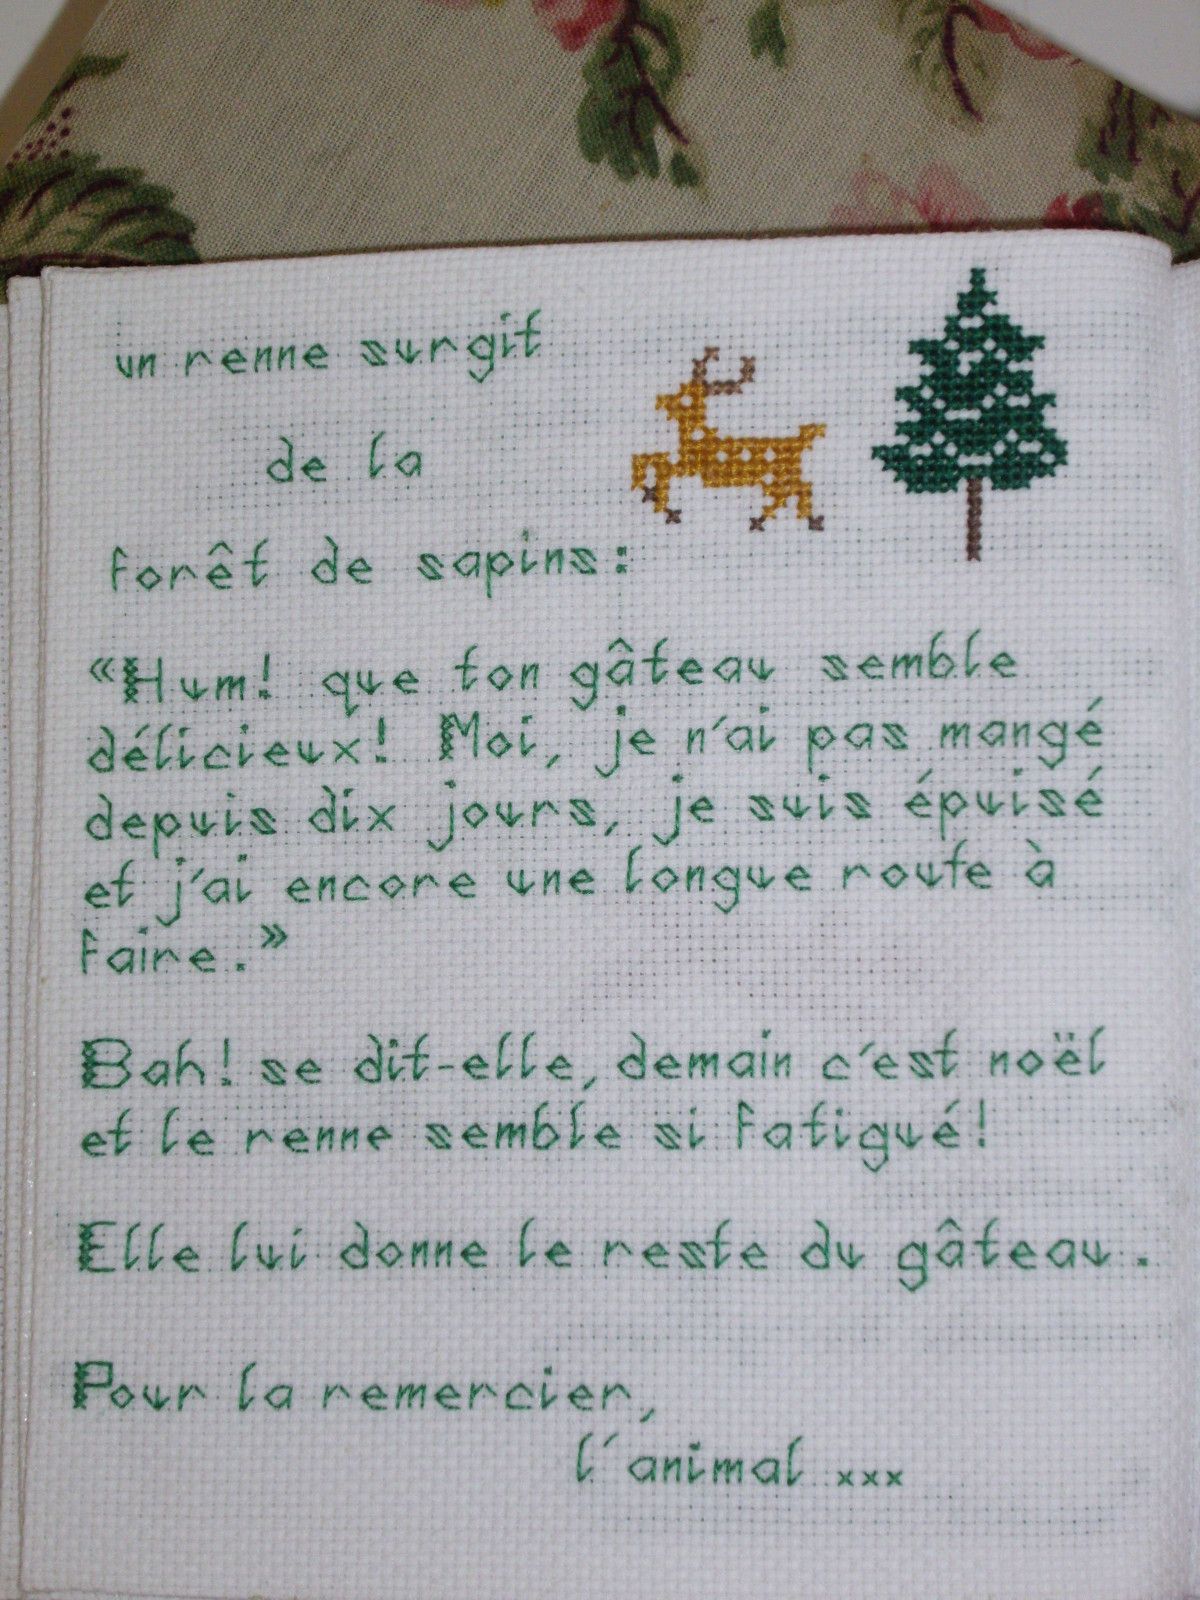 un renne surgit
de la
forêt de sapins:
«Hum! que ton gâteau semble
délicieux! Moi, je n'ai pas mangé
depuis dix jours, je suis épuisé
et j'ai encore une longue route à
faire.»
Bah! se dit-elle, demain c'est noël
et le renne semble si fatigué!
Elle lui donne le reste du gâteau.
Pour la remercier,
l'animal xxx